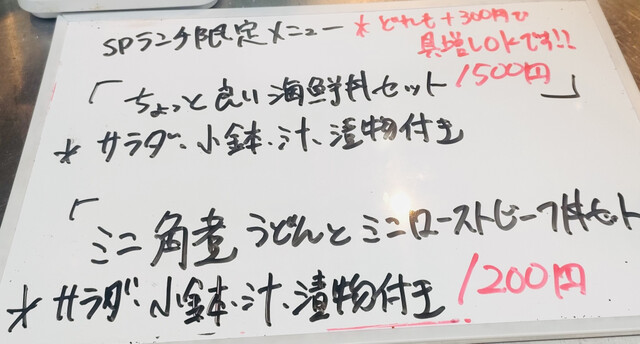 SPランチ限定メニュー
*どれも+300円で
具増しOKです!!
「ちょっと良い海鮮丼セット 1500円」
*サラダ、小鉢、汁、漬物付き
「ミニ角煮うどんとミニローストビーフ丼セット
*サラダ、小鉢、汁、漬物付き 1200円